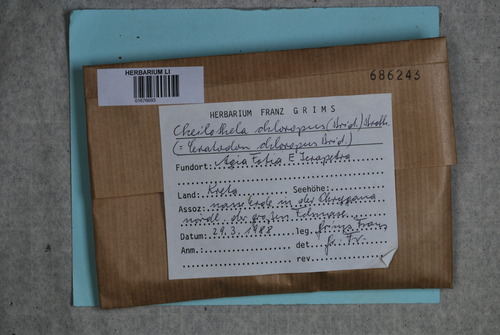 HERBARIUM LI
686243
HERBARIUM FRANZ GRIMS
Cheilothela chloropus (Brid.) Broth.
(= Ceratodon chloropus Brid.)
Fundort: Agia Fotia E Ierapetra
Land: Kreta Seehöhe:
Assoz: nane Erde in der
nördl. der großen
Datum: 29.3.1988 leg. Grims Franz
Anm.: det. Gr. Fr.
rev.